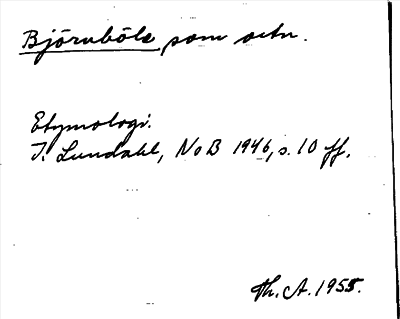 Björnböle som ortn.
Etymologi.
I. Lundahl, NoB 1946, s. 10 ff.
Th. A. 1955.